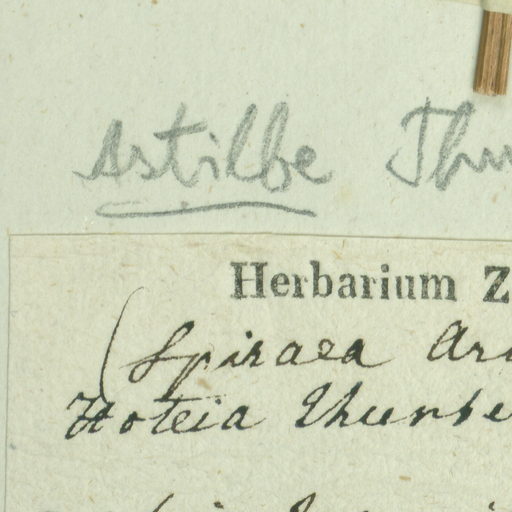 Astilbe Thu
Herbarium Z
(Spiraea Aru
Hoteia Thunbe